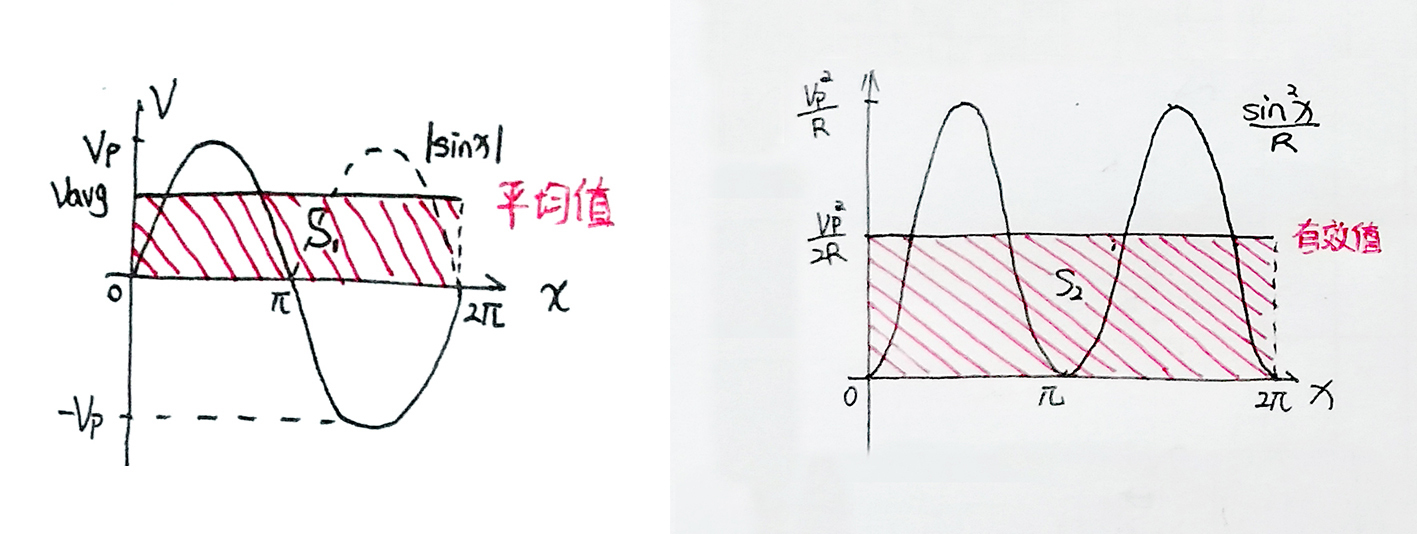 V
Vp
Vavg
|sinx|
平均值
S₁
0
π
2π
x
-Vp
Vp²/R
sin²x/R
Vp²/2R
有效值
S₂
0
π
2π
x